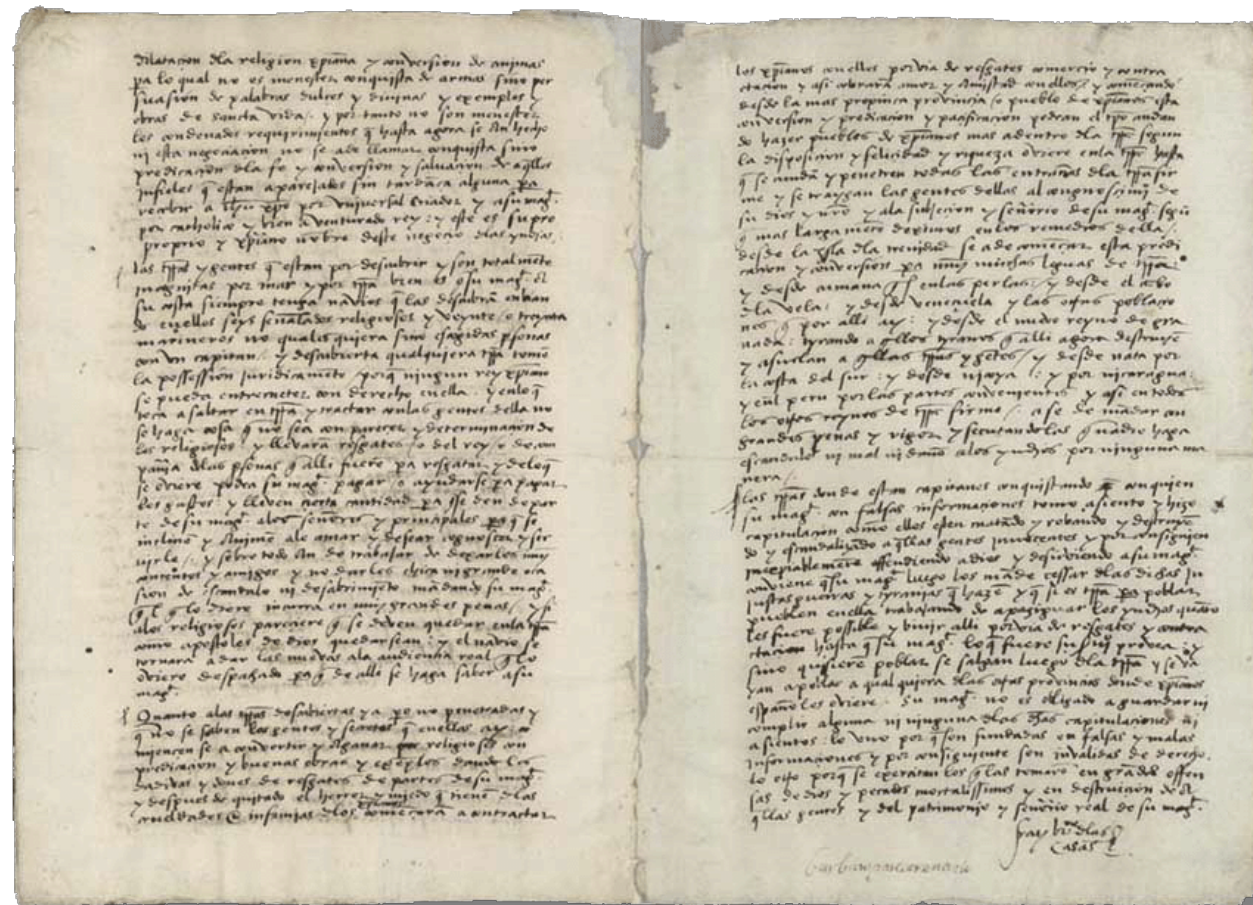 dilatacion dla religion xpiana y conversion de animas
pa lo qual no es menester conquista de armas sino per
suasion de palabras dulces y divinas y exemplos y
obras de sancta vida / y por tanto no son menester
los condenados requirimientos q hasta agora se an hecho
ni esta negociacion no se a de llamar conquista sino
predicacion dla fe y conversion y salvacion de aqllos
infieles q estan aparejados sin tardãça alguna pa
recebir a xpo por universal criador y a su magt
por catholico y bien aventurado rey: y este es su pro
proprio y xpiano nõbre deste negocio dlas yndias.
las trras y gentes q estan por descubrir y son totalmẽte
por mar y por trra bien
su costa siempre tenga navios q las descubrã enbian
do en ellos seys señalados religiosos y veynte o treynta
marineros no qualesquiera sino escogidas psonas
con un capitan / y descubierta qualquiera trra tome
la possession juridicamẽte porq ningun rey xpiano
se pueda entremeter con derecho en ella: y en lo q
toca a saltar en trra y tractar con las gentes della no
se haga cosa q no sea con parecer y determinacion de
los religiosos / y llevarã resgates o del rey o de con
pañia dlas psonas q alli fuerẽ pa resgatar y de lo q
se oviere podra su magt pagar o ayudarse pa pagar
los gastos: y lleven cierta cantidad pa q se den de par
te de su magt a los señores y principales pa q se
inclinẽ y animẽ a le amar y desear cognoscer y ser
virle / y sobre todo an de trabajar de dexarlos muy
contentos y amigos y no darles chica ni grande oca
sion de escandalo ni desabrimiẽto mãdando su magt
q el q lo diere incurra en muy grandes penas / y si
a los religiosos pareciere q se deven quedar en la trra
como apostoles de dios quedarsean: y el navio se
tornara a dar las nuevas a la audiencia real q lo
oviere despachado pa q de alli se haga saber a su
magt
Quanto a las trras descubiertas ya po no penetradas y
q no se saben las gentes y secretos q en ellas ay: co
miencense a convertir y a ganar por religiosos con
predicacion y buenas obras y exẽplos dando les
dadivas y dones de resgates de partes de su magt
y despues de quitado el horror y miedo q tienen dlas
crueldades e infamias dlos xpianos comẽçarã a contractar
los xpianos con ellos por via de resgates comercio y contra
ctacion y asi cobrarã amor y amistad con ellos / y comẽçando
desde la mas propinca provincia o pueblo de xpianos esta
conversion y predicacion y pacificacion podran el tpo andan
do hazer pueblos de xpianos mas adentro dla trra segun
la disposicion y felicidad y riqueza oviere en la trra hasta
q se andẽ y penetren todas las entrañas dla trra fir
me y se traygan las gentes dellas al cognoscimiº de
su dios y nro y a la subjecion y señorio de su magt segũ
q mas larga mẽte deximos en los remedios della /.
desde la ysla dla trenidad se a de comẽçar esta predi
cacion y conversion pa muy muchas leguas de trra
y desde cumana q es en las perlas: y desde el cabo
dla vela: y desde veneçuela y las otras poblacio
nes q por alli ay: y desde el nuevo reyno de gra
nada: tyrando a qllos tyranos q alli agora destruyẽ
y asuelan a qllas trras y gẽtes / y desde nata por
la costa del sur: y desde nicoya: y por nicaragua:
y en el peru por las partes convenientes y asi en todos
los otros reynos de trra firme / a se de mãdar con
grandes penas y rigor y secutandolas q nadie haga
escandalo ni mal ni daño a los yndios por ninguna ma
nera /.
las trras donde estan capitanes conquistando con quien
su magt con falsas informaciones tomo asiento y hizo
capitulacion como ellos esten matãdo y robando y destruyẽ
do y escandalizãdo a qllas gentes innocentes y por consiguien
inexpiablemẽte offendiendo a dios y desirviendo a su magt
conviene q su magt luego los mãde cessar dlas dichas in
justas guerras y tyranias q hazẽ y q si es trra pa poblar
pueblen en ella trabajando de apaziguar los yndios quãto
les fuere possible y bivir alli por via de resgates y contra
ctacion hasta q su magt lo q fuere su servi provea: y
si no quisierẽ poblar se salgan luego dla trra y se va
yan a poblar a qualquiera dlas otras provincias donde xpianos
españoles oviere. Su magt no es obligado a guardar ni
complir alguna ni ninguna dlas dhas capitulaciones ni
asientos: lo uno por q son fundadas en falsas y malas
informaciones y por consiguiente son invalidas de derecho.
lo otro porq se exercitan los q las tomarõ en grandes offen
sas de dios y pecados mortalissimos y en destrucion de a
qllas gentes y del patrimonio y señorio real de su magt.
fray bme dlas
casas